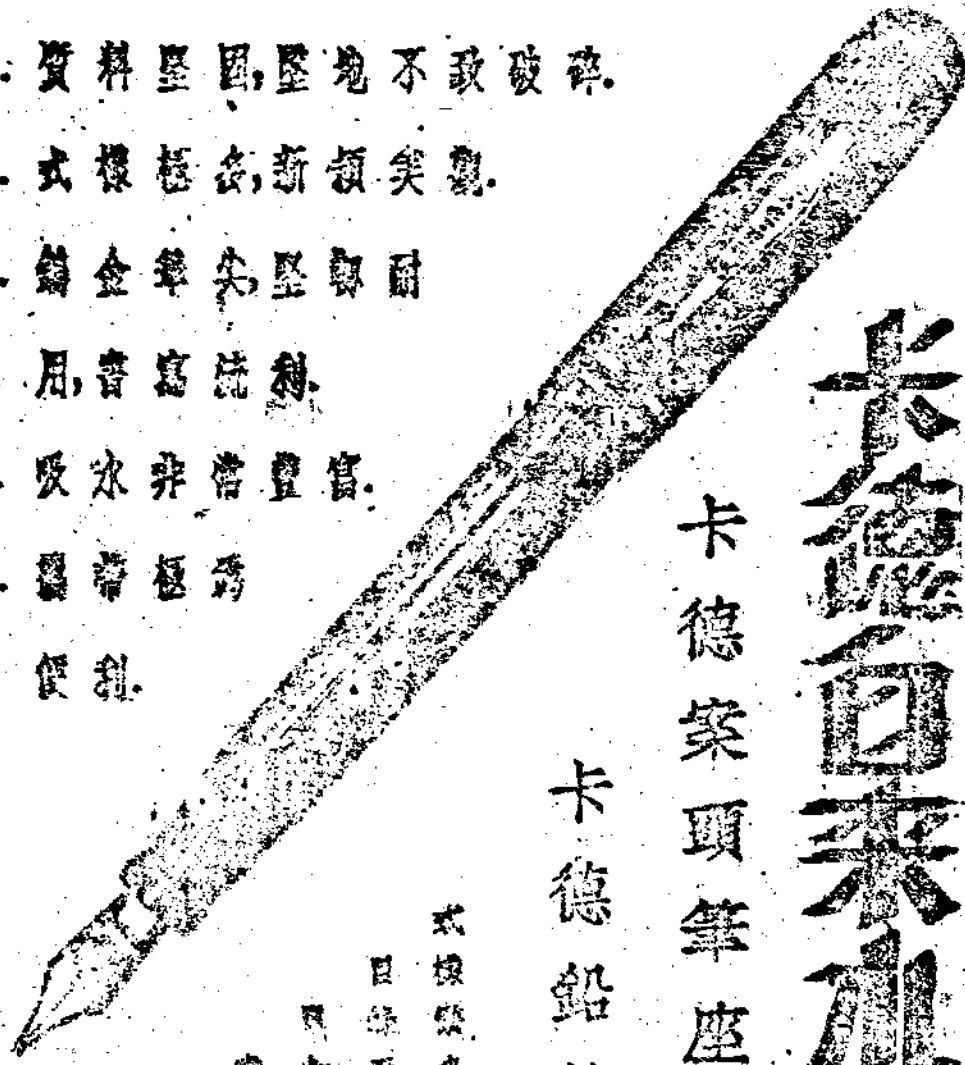 質料堅固,墜地不致破碎.
式樣極多,新穎美觀.
鑄金筆尖,堅韌耐
用,書寫流利.
吸水非常豐富.
攜帶極爲
便利.
卡德自來水
卡德案頭筆座
卡德鉛
式樣